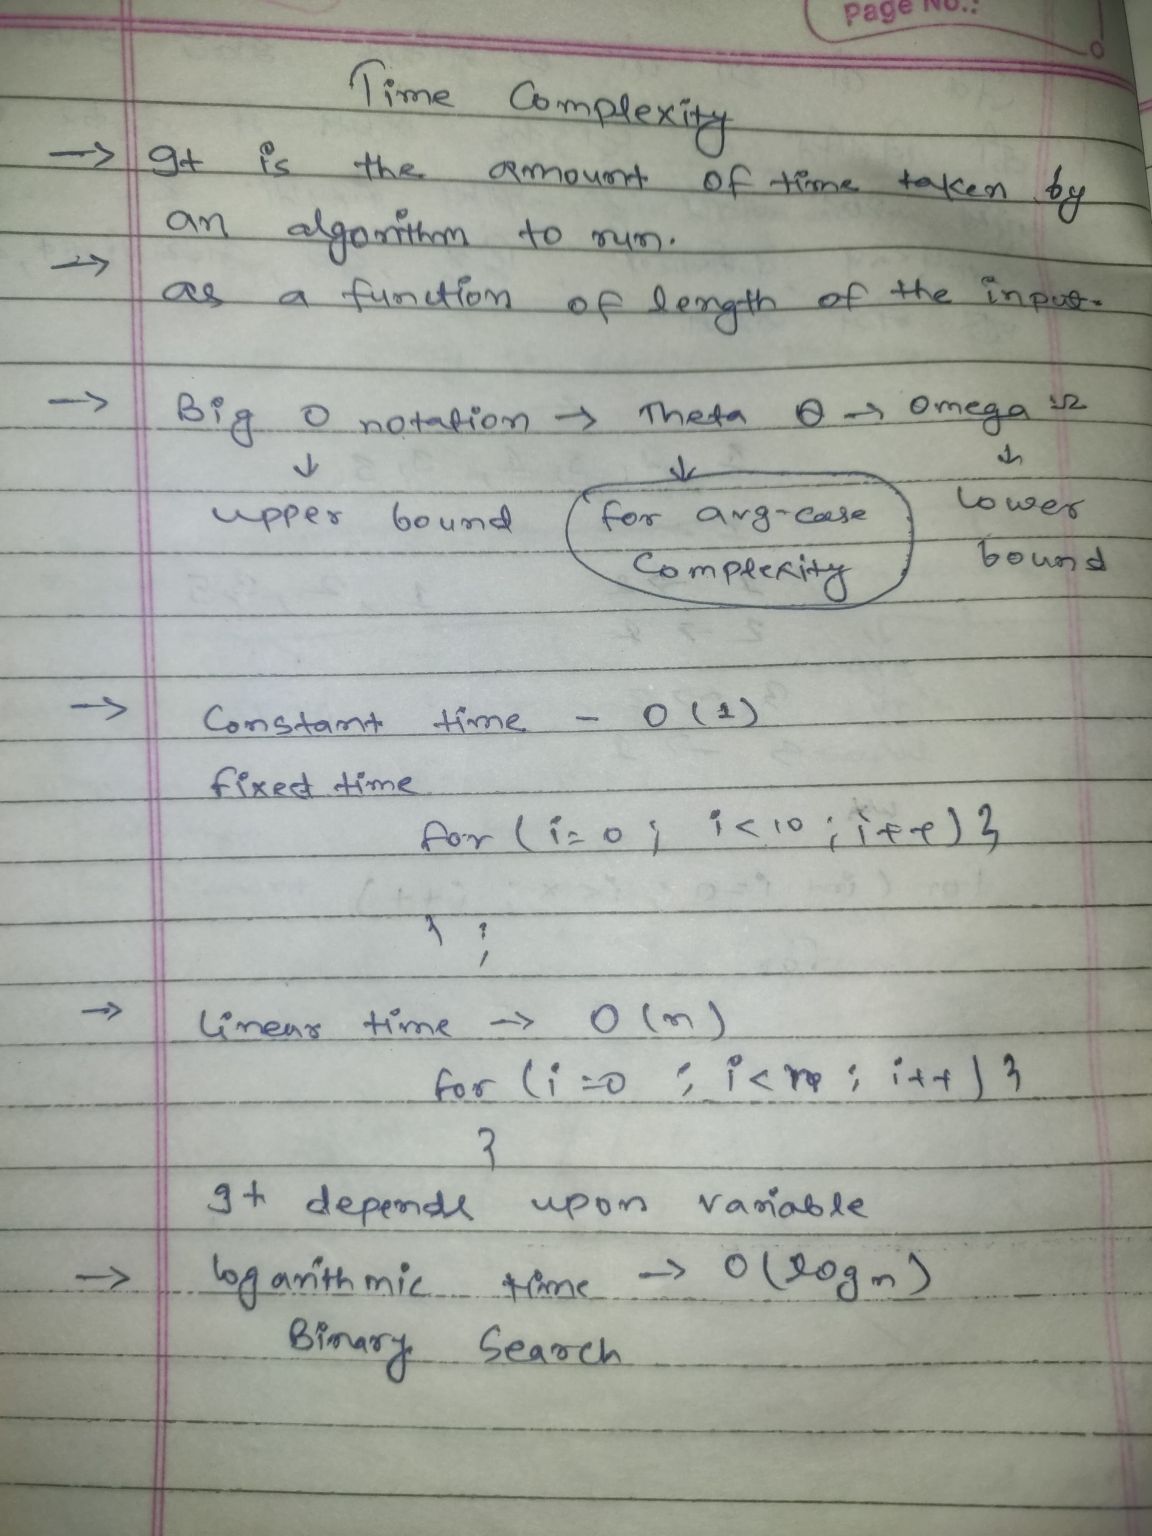 Page No.:
Time Complexity
→ It is the amount of time taken by
an algorithm to run.
→ as a function of length of the input.
→ Big O notation → Theta θ → Omega Ω
↓ ↓ ↓
upper bound for avg-case lower
complexity bound
→ Constant time - O(1)
fixed time
for (i=0; i<10; i++) }
} ;
→ Linear time → O(n)
for (i=0 ; i<n ; i++) }
}
It depends upon variable
→ logarithmic time → O(logn)
Binary Search